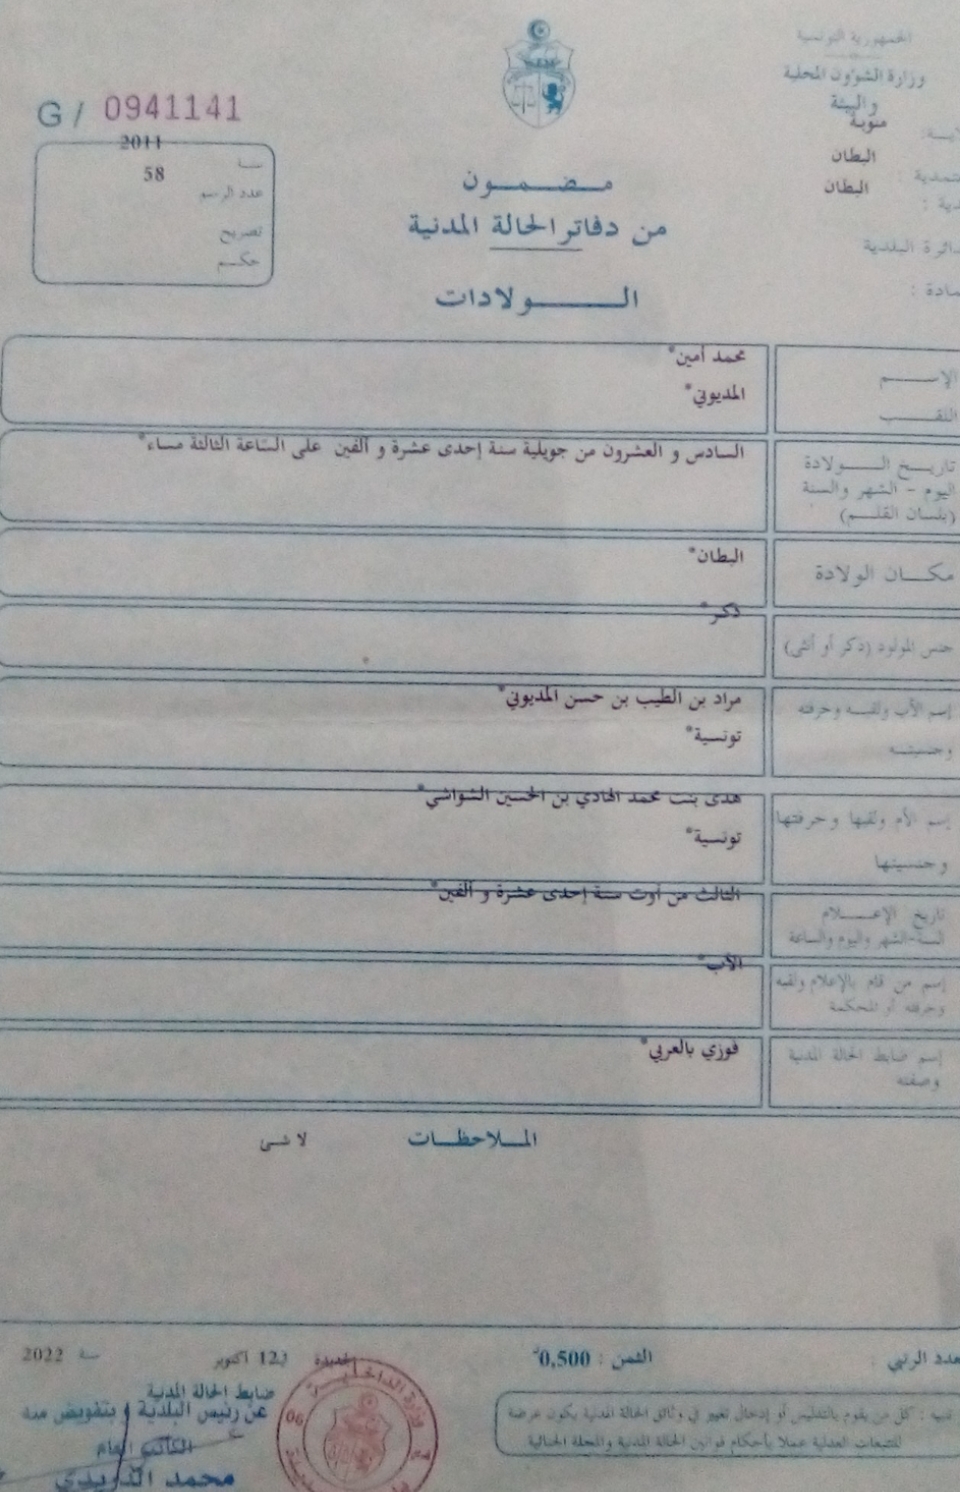 الجمهورية التونسية
وزارة الشؤون المحلية
والبيئة
منوبة
البطان
البطان
دائرة البلدية
G / 0941141
سنة 2011
عدد الرسم 58
تصريح
حكم
مضمون
من دفاتر الحالة المدنية
الولادات
الإسم محمد أمين*
اللقب المديوني*
تاريخ الولادة
اليوم - الشهر والسنة
(بلسان القلم)
السادس و العشرون من جويلية سنة إحدى عشرة و ألفين على الساعة الثالثة مساء*
مكان الولادة البطان*
جنس المولود (ذكر أو أنثى) ذكر*
إسم الأب ولقبه وحرفته مراد بن الطيب بن حسن المديوني*
وجنسيته تونسية*
إسم الأم ولقبها وحرفتها هدى بنت محمد الهادي بن الحسين الشواشي*
وجنسيتها تونسية*
تاريخ الإعلام الثالث من أوت سنة إحدى عشرة و ألفين*
السنة-الشهر واليوم والساعة
إسم من قام بالإعلام ولقبه الأب*
وحرفته أو المحكمة
إسم ضابط الحالة المدنية فوزي بالعربي*
وصفته
الملاحظات لا شئ
الثمن : 0,500
الجديدة 12 أكتوبر سنة 2022
ضابط الحالة المدنية
عن رئيس البلدية و بتفويض منه
الكاتب العام
محمد
وزارة الداخلية
06
تنبيه : كل من يقوم بالتدليس أو إدخال تغيير في وثائق الحالة المدنية يكون عرضة
للتتبعات العدلية عملا بأحكام قوانين الحالة المدنية والمجلة الجنائية